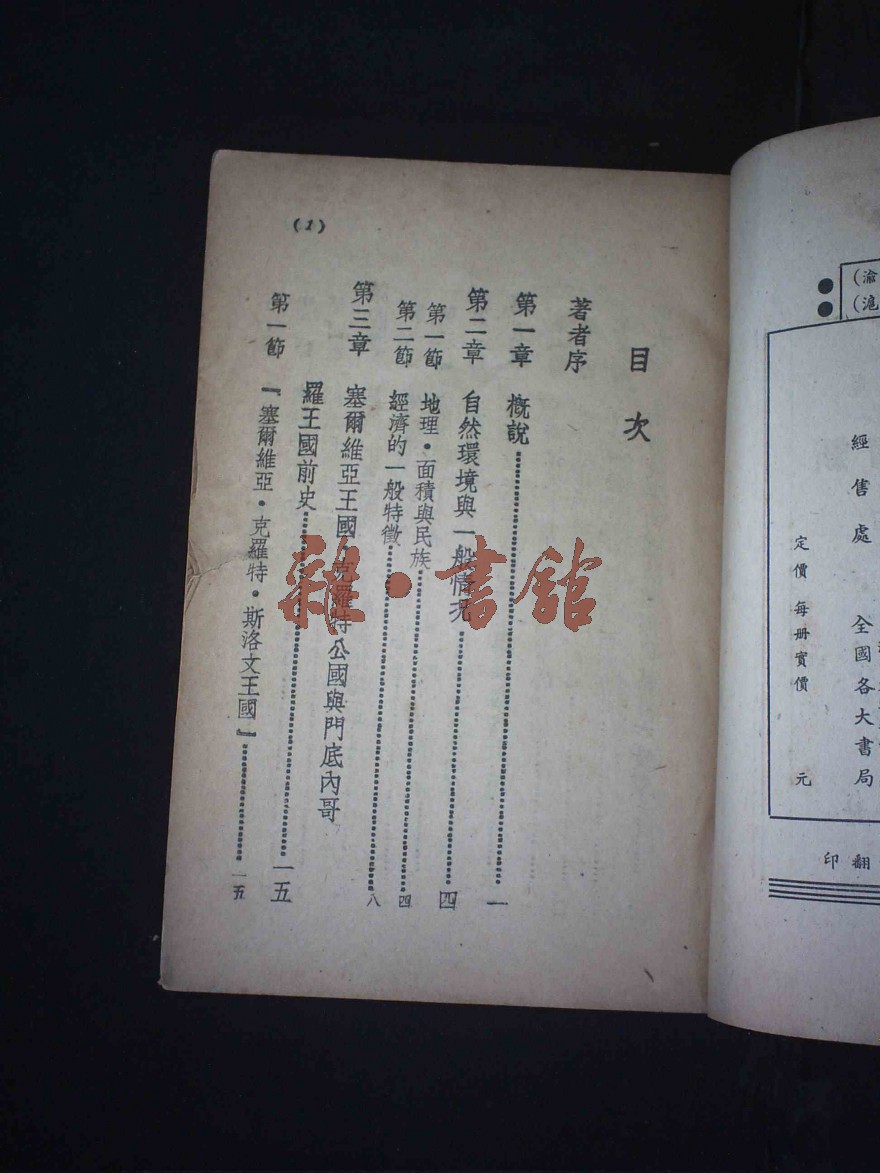 目次
著者序
第一章 概說 一
第二章 自然環境與一般情況 四
第一節 地理・面積與民族 四
第二節 經濟的一般特徵 八
第三章 塞爾維亞王國・克羅特公國與門底內哥
羅王國前史 一五
第一節 『塞爾維亞・克羅特・斯洛文王國』 一五
(1)
雜・書館
(渝
(滬
經售處 全國各大書局
定價每册實價 元
翻印